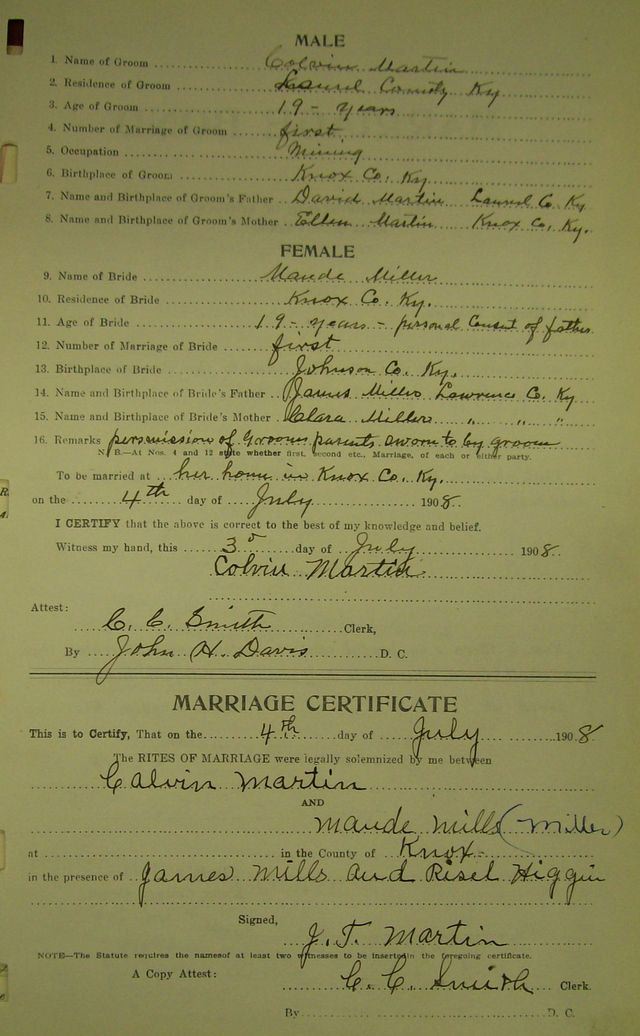 MALE
1. Name of Groom Colvin Martin
2. Residence of Groom Laurel County Ky
3. Age of Groom 19 - years
4. Number of Marriage of Groom first
5. Occupation Mining
6. Birthplace of Groom Knox Co. Ky
7. Name and Birthplace of Groom's Father David Martin Laurel Co Ky
8. Name and Birthplace of Groom's Mother Ellen Martin Knox Co, Ky.
FEMALE
9. Name of Bride Maude Miller
10. Residence of Bride Knox Co. Ky.
11. Age of Bride 19 - years - personal Consent of father
12. Number of Marriage of Bride first
13. Birthplace of Bride Johnson Co. Ky.
14. Name and Birthplace of Bride's Father James Lawrence Co. Ky
15. Name and Birthplace of Bride's Mother Clara " " "
16. Remarks permission of Grooms parents sworn to by groom
N. B.—At Nos. 4 and 12 state whether first, second etc., Marriage, of each or either party.
To be married at her home in Knox Co, Ky.
on the 4th day of July 1908.
I CERTIFY that the above is correct to the best of my knowledge and belief.
Witness my hand, this 3 day of July 1908.
Colvin Martin
Attest:
C. C. Smith Clerk,
By John H. Davis D. C.
MARRIAGE CERTIFICATE
This is to Certify, That on the 4th day of July 1908
The RITES OF MARRIAGE were legally solemnized by me between
Calvin Martin
AND
Maude Mills (Miller)
at in the County of Knox
in the presence of James Mills and Risel Higgin
Signed,
J. T. Martin
NOTE—The Statute requires the names of at least two witnesses to be inserted in the foregoing certificate.
A Copy Attest: C. C. Smith Clerk.
By D. C.